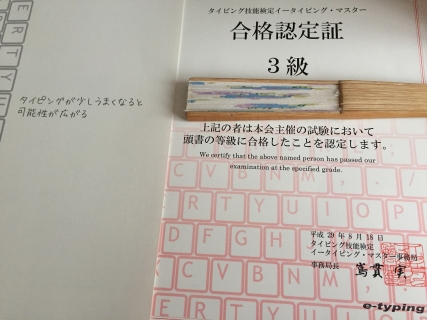 タイピング技能検定イータイピング・マスター
合格認定証
3級
タイピングが少しうまくなると
可能性が広がる
上記の者は本会主催の試験において
頭書の等級に合格したことを認定します。
We certify that the above named person has passed our
examination at the specified grade.
平成 29 年 8 月 18 日
タイピング技能検定
イータイピング・マスター事務局
事務局長
e-typing